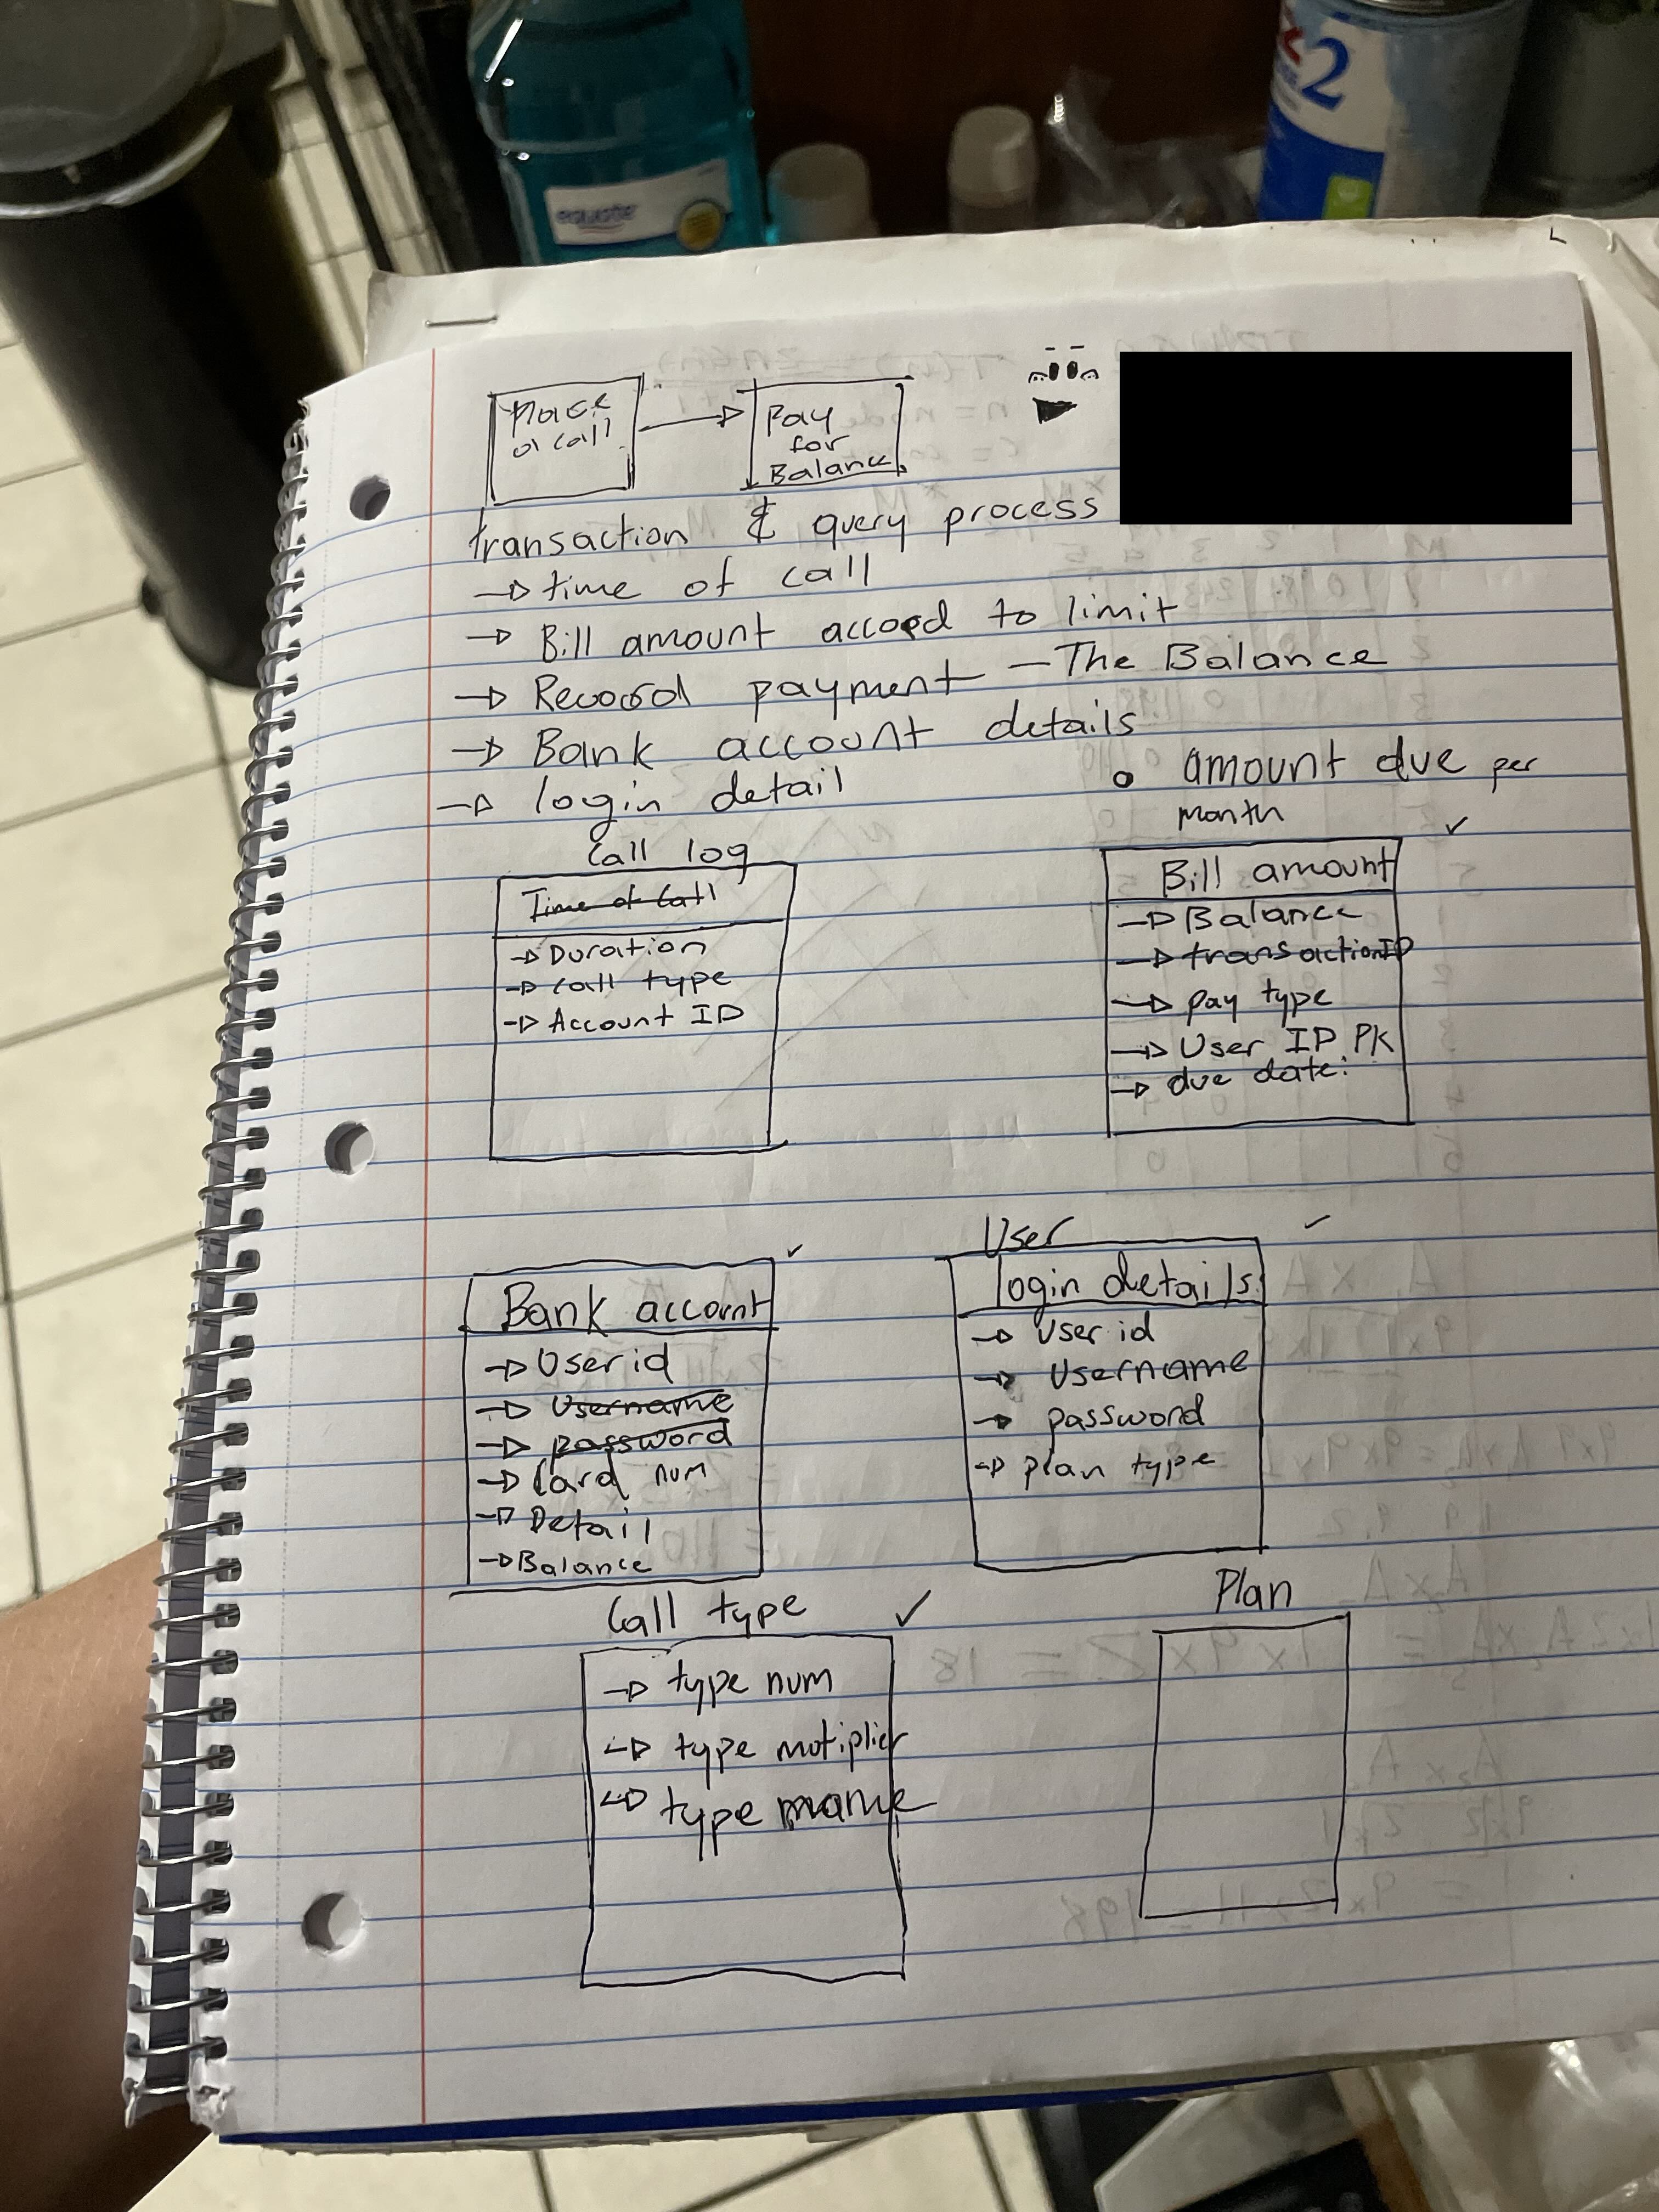 equate
2
Place
a call
Pay
for
Balance
transaction & query process
→ time of call
→ Bill amount accord to limit
→ Record payment — The Balance
→ Bank account details
→ login detail
o amount due per
month
Call log
Time of Call
→ Duration
→ call type
→ Account ID
✓
Bill amount
→ Balance
→ transactionID
→ pay type
→ User ID PK
→ due date:
✓
Bank account
→ User id
→ Username
→ password
→ Card num
→ Detail
→ Balance
User ✓
login details
→ User id
→ Username
→ password
→ plan type
Call type ✓
→ type num
→ type motiplier
→ type name
Plan